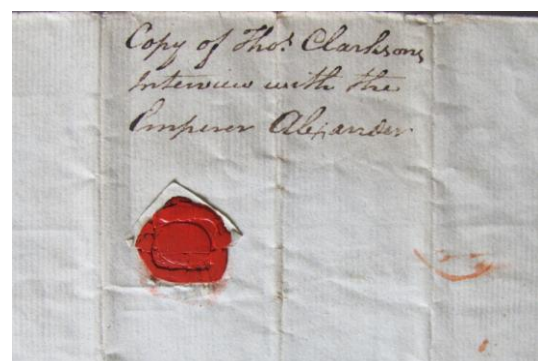 Copy of Thos. Clarksons
Interview with the
Emperor Alexander